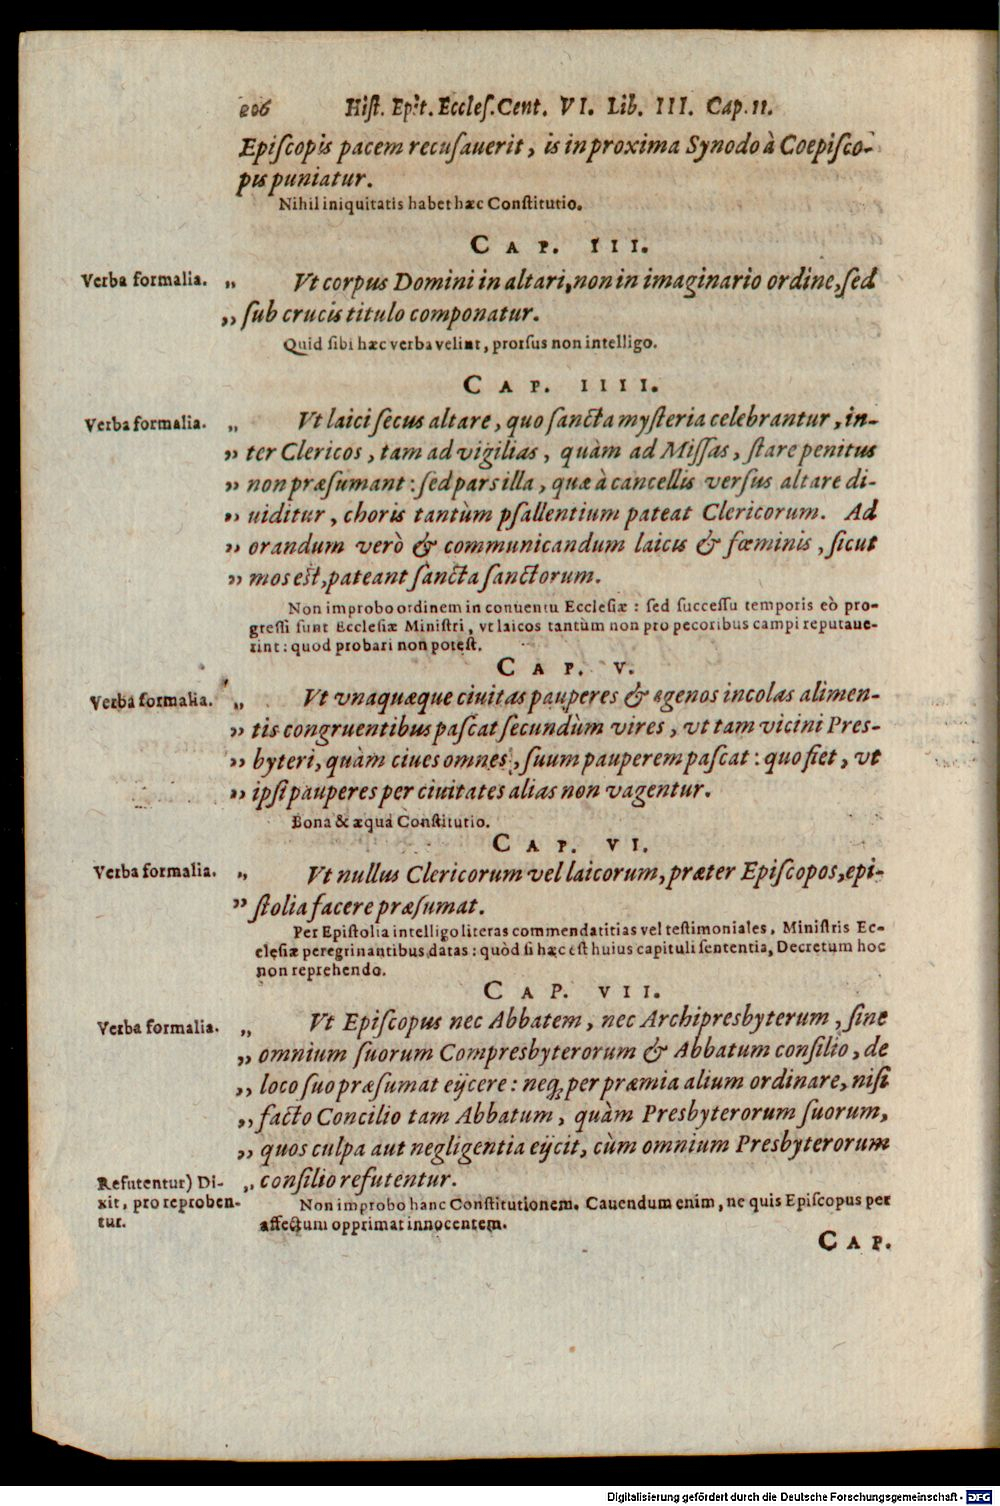 206 Hiſt. Epit. Eccleſ. Cent. VI. Lib. III. Cap. 11.
Epiſcopis pacem recuſauerit, is in proxima Synodo à Coepiſco-
pis puniatur.
Nihil iniquitatis habet hæc Conſtitutio.
CAP. III.
Verba formalia. „ Vt corpus Domini in altari, non in imaginario ordine, ſed
„ ſub crucis titulo componatur.
Quid ſibi hæc verba velint, prorſus non intelligo.
CAP. IIII.
Verba formalia. „ Vt laici ſecus altare, quo ſancta myſteria celebrantur, in-
„ ter Clericos, tam ad vigilias, quàm ad Miſſas, ſtare penitus
„ non præſumant: ſed pars illa, quæ à cancellis verſus altare di-
„ uiditur, choris tantùm pſallentium pateat Clericorum. Ad
„ orandum verò & communicandum laicis & fœminis, ſicut
„ mos eſt, pateant ſancta ſanctorum.
Non improbo ordinem in conuentu Eccleſiæ: ſed ſucceſſu temporis eò pro-
greſſi ſunt Eccleſiæ Miniſtri, vt laicos tantùm non pro pecoribus campi reputaue-
rint: quod probari non poteſt.
CAP. V.
Verba formalia. „ Vt vnaquæque ciuitas pauperes & egenos incolas alimen-
„ tis congruentibus paſcat ſecundùm vires, vt tam vicini Pres-
„ byteri, quàm ciues omnes, ſuum pauperem paſcat: quo fiet, vt
„ ipſi pauperes per ciuitates alias non vagentur.
Bona & æqua Conſtitutio.
CAP. VI.
Verba formalia. „ Vt nullus Clericorum vel laicorum, præter Epiſcopos, epi-
„ ſtolia facere præſumat.
Per Epiſtolia intelligo literas commendatitias vel teſtimoniales, Miniſtris Ec-
cleſiæ peregrinantibus datas: quòd ſi hæc eſt huius capituli ſententia, Decretum hoc
non reprehendo.
CAP. VII.
Verba formalia. „ Vt Epiſcopus nec Abbatem, nec Archipresbyterum, ſine
„ omnium ſuorum Compresbyterorum & Abbatum conſilio, de
„ loco ſuo præſumat eijcere: neq; per præmia alium ordinare, niſi
„ facto Concilio tam Abbatum, quàm Presbyterorum ſuorum,
„ quos culpa aut negligentia eijcit, cùm omnium Presbyterorum
„ conſilio refutentur.
Refutentur) Di-
xit, pro reproben-
tur.
Non improbo hanc Conſtitutionem. Cauendum enim, ne quis Epiſcopus per
affectum opprimat innocentem.
CAP.
Digitalisierung gefördert durch die Deutsche Forschungsgemeinschaft - DFG